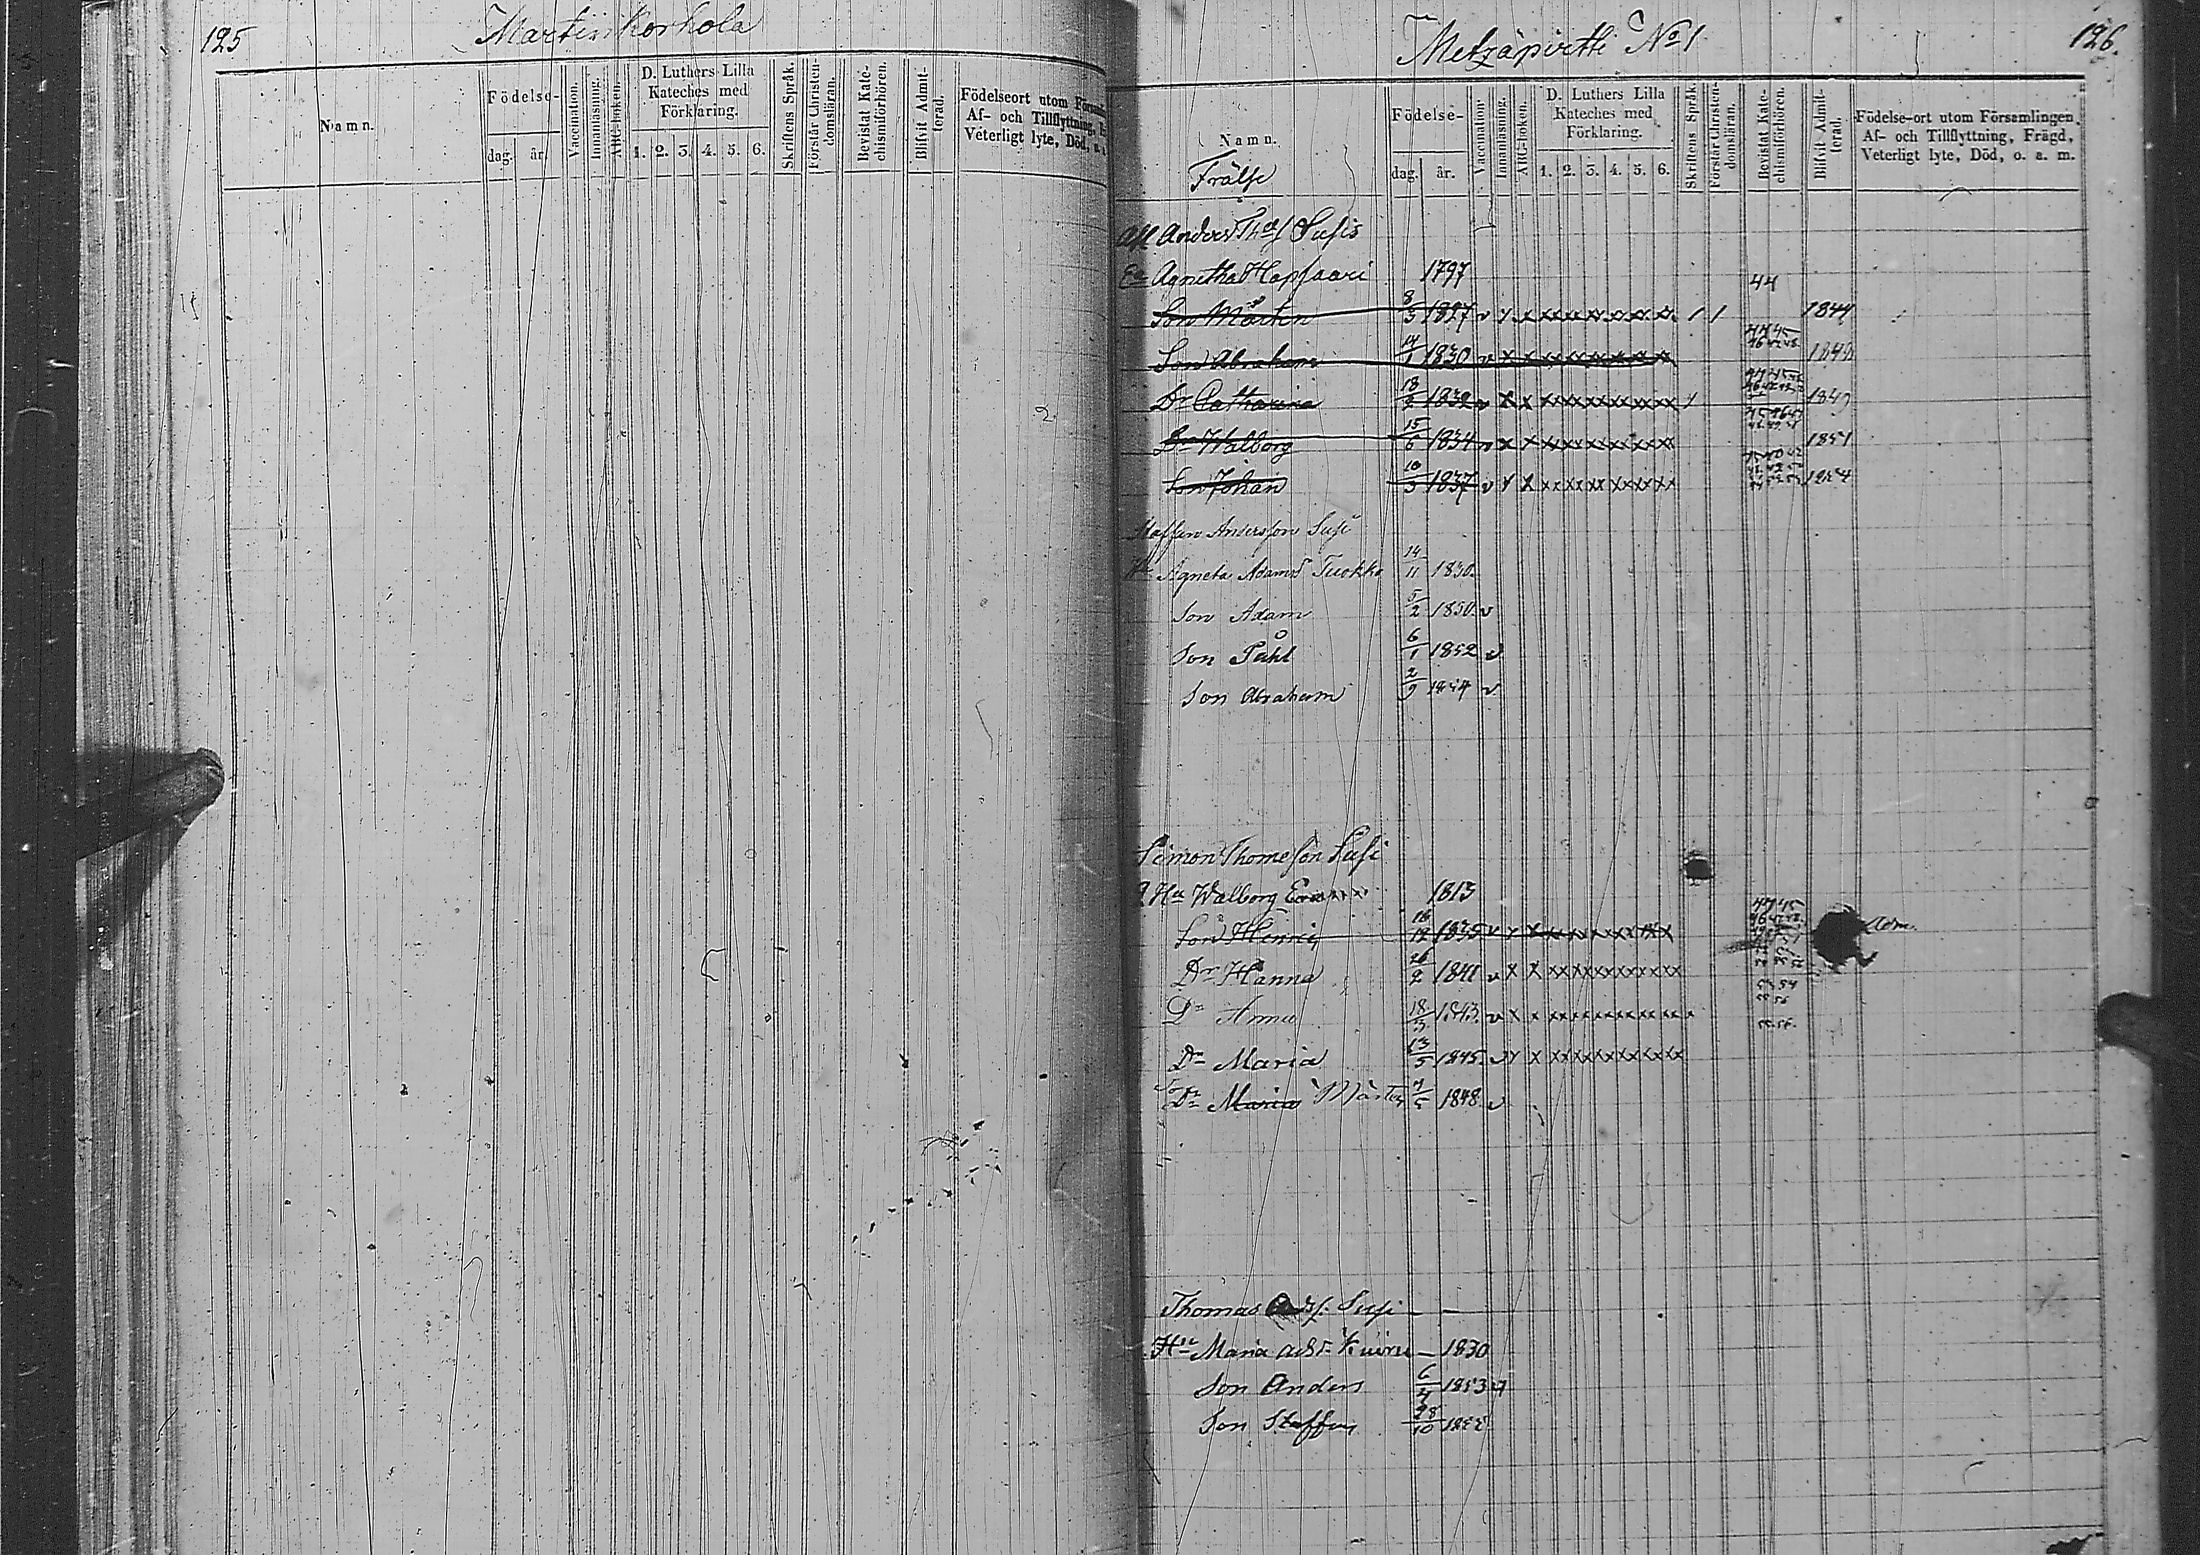 125
Martinkorhola
Namn.
Födelse-
dag. år.
Vaccination.
Innanläsning.
ABC-boken.
D. Luthers Lilla
Kateches med
Förklaring.
1. 2. 3. 4. 5. 6.
Skriftens Språk.
Förstår Christen-
domsläran.
Bevistat Kate-
chismiförhören.
Blifvit Admit-
terad.
Födelseort utom
Af- och Tillflyttning,
Veterligt lyte, Död, o.
Metzäpirtti No 1
126.
Namn.
Födelse-
dag. år.
Vaccination
Innanläsning.
ABC-boken.
D. Luthers Lilla
Kateches med
Förklaring.
1. 2. 3. 4. 5. 6.
Skriftens Språk.
Förstår Christen-
domsläran.
Bevistat Kate-
chismiförhören.
Blifvit Admit-
terad.
Födelse-ort utom Församlingen
Af- och Tillflyttning, Frägd,
Veterligt lyte, Död, o. a. m.
Frälse
Anders Susis
Ea Agnetha Hapsaari 1797 44
Son Mårten 8/3 1827 v 1844
Son Abraham 14/1 1830 v
Dr Catharina 18/2 1832 v 1849
Dr Walborg 15/6 1834 v 1851
Son Johan 10/3 1837 v 1854
Staffan Andersson Susi
Hu Agneta Adamsd Tuokko 14/11 1830.
Son Adam 5/2 1850. v
Son Påhl 6/1 1852 v
Son Abraham 2/9 1854 v
Simon Thomeson Susi
Hu Walborg 1813
Son Henric 16/12 1835 v Adm.
Dr Hanna 26/2 1841 v 53 54 55 56
Dr Anna 18/3 1843. v 55. 56.
Dr Maria 13/5 1845. v
Dr Maria Mårten 1848. v
Thomas Susi
Hu Maria 1830
Son Anders 6/4 1853 v
Son Staffan 28/10 1855